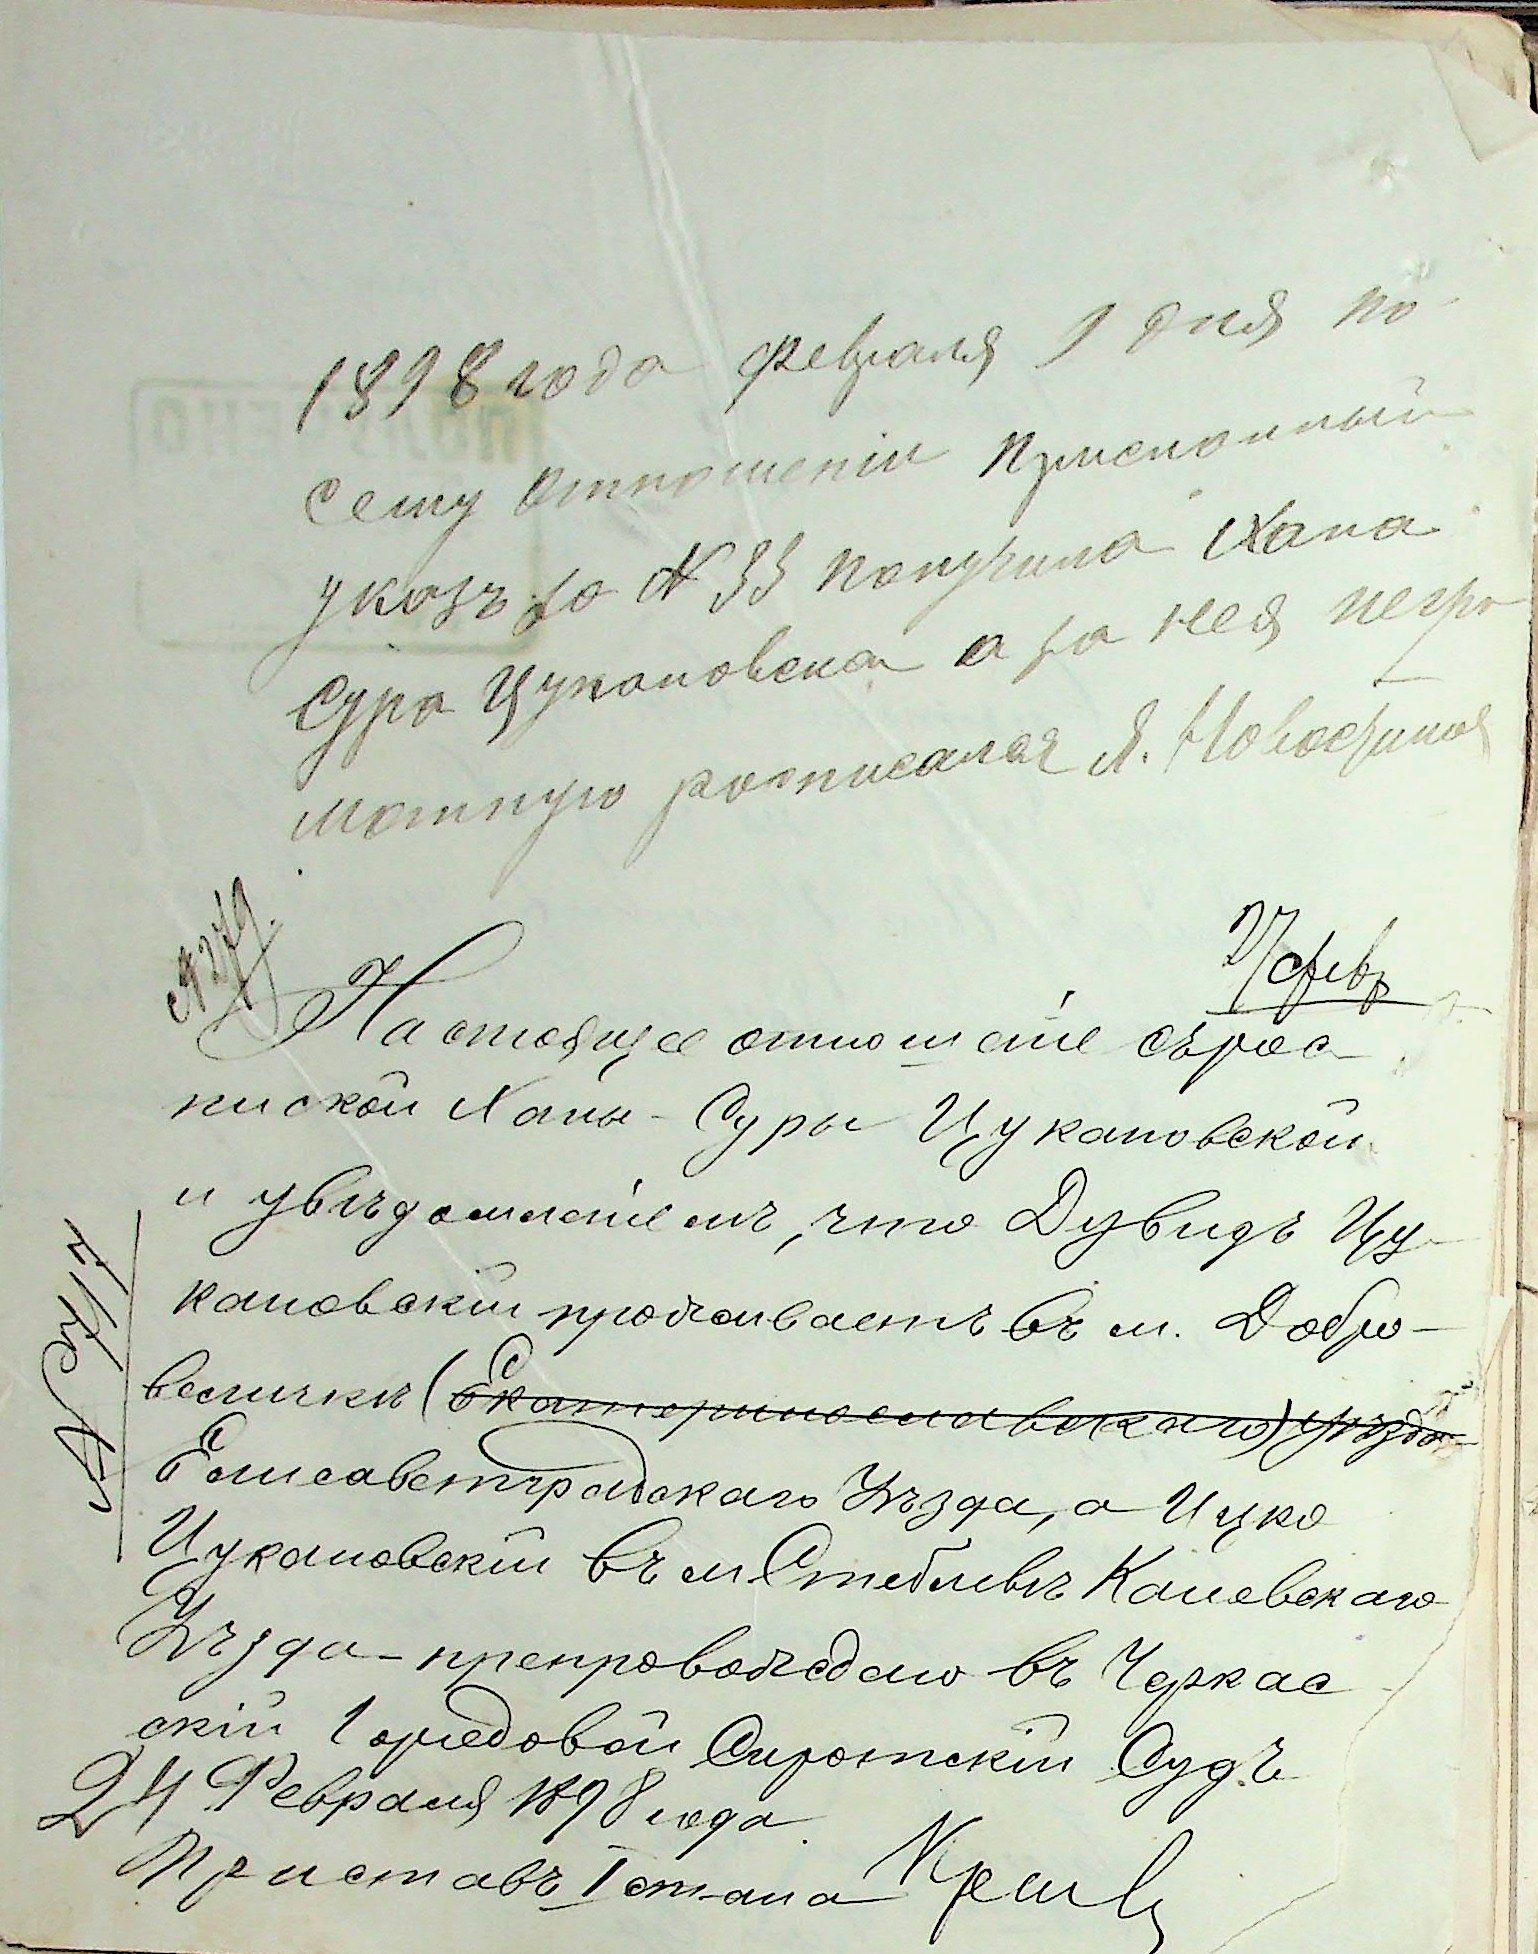 1898 года февраля 1 дня по
сему отношеніи присланный
указъ за № 33 получила Хана
Сура Цукановска а за нея негра
мотную росписался Я.
№ 279.
27 февр
Настоящее отношеніе съ рос
пиской Ханы-Суры Цукановской
и увѣдомленіемъ, что Дувидъ Цу
кановскій проживаетъ въ м. Добро-
величкѣ (Екатеринославскаго) уѣзда
Елисаветградскаго Уѣзда, а Ицко
Цукановскій въ м Стеблевѣ Каневскаго
Уѣзда - препровождаю въ Черкас
скій Городовой Сиротскій Судъ
24 Февраля 1898 года.
Приставъ I стана